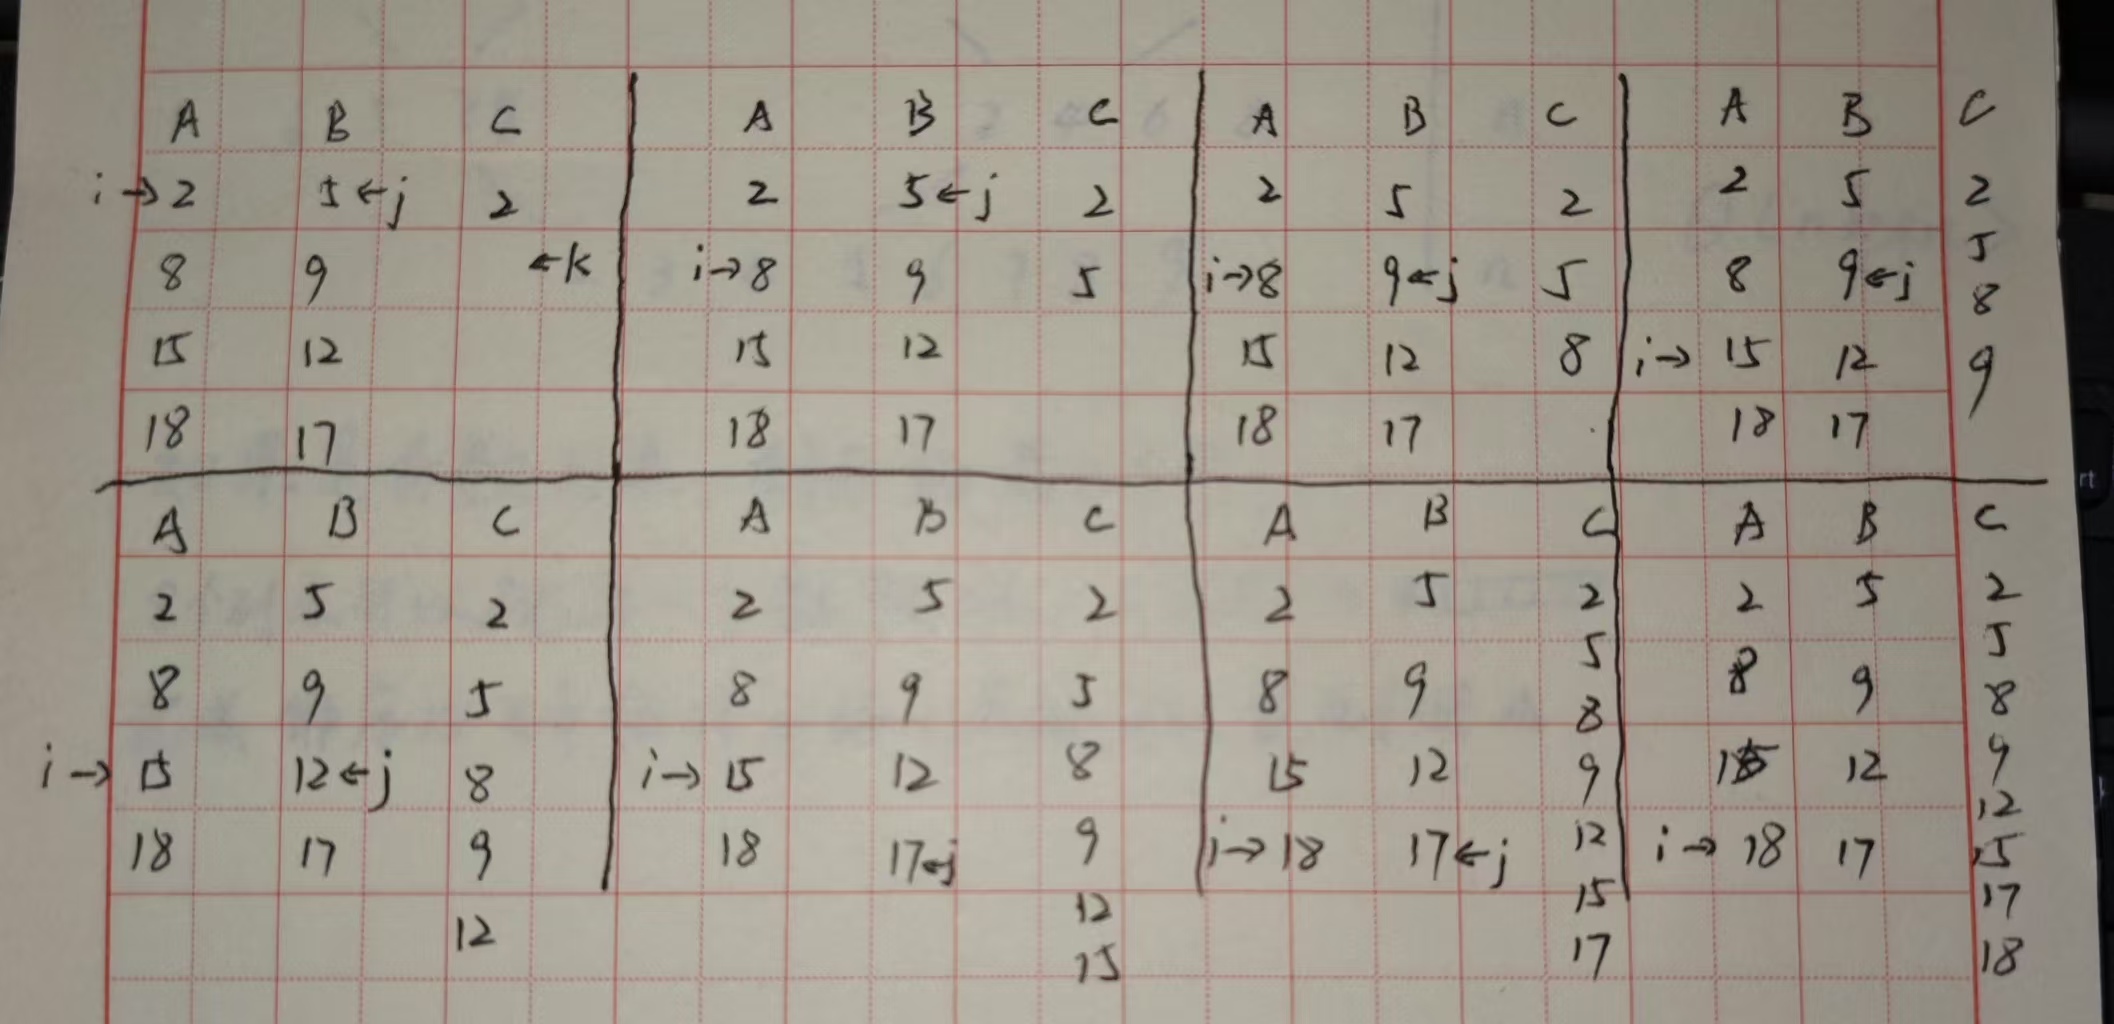 A B C
i→2 5←j 2
8 9 ←k
15 12
18 17
A B C
2 5←j 2
i→8 9 5
15 12
18 17
A B C
2 5 2
i→8 9←j 5
15 12 8
18 17
A B C
2 5 2
5
8 9←j 8
i→15 12 9
18 17
A B C
2 5 2
8 9 5
i→15 12←j 8
18 17 9
12
A B C
2 5 2
8 9 5
i→15 12 8
18 17←j 9
12
15
A B C
2 5 2
5
8 9 8
15 12 9
i→18 17←j 12
15
17
A B C
2 5 2
5
8 9 8
15 12 9
12
i→18 17 15
17
18